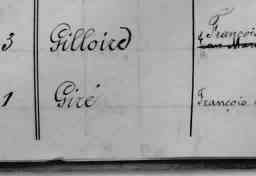 3 Gilloire) François
1 Giré François